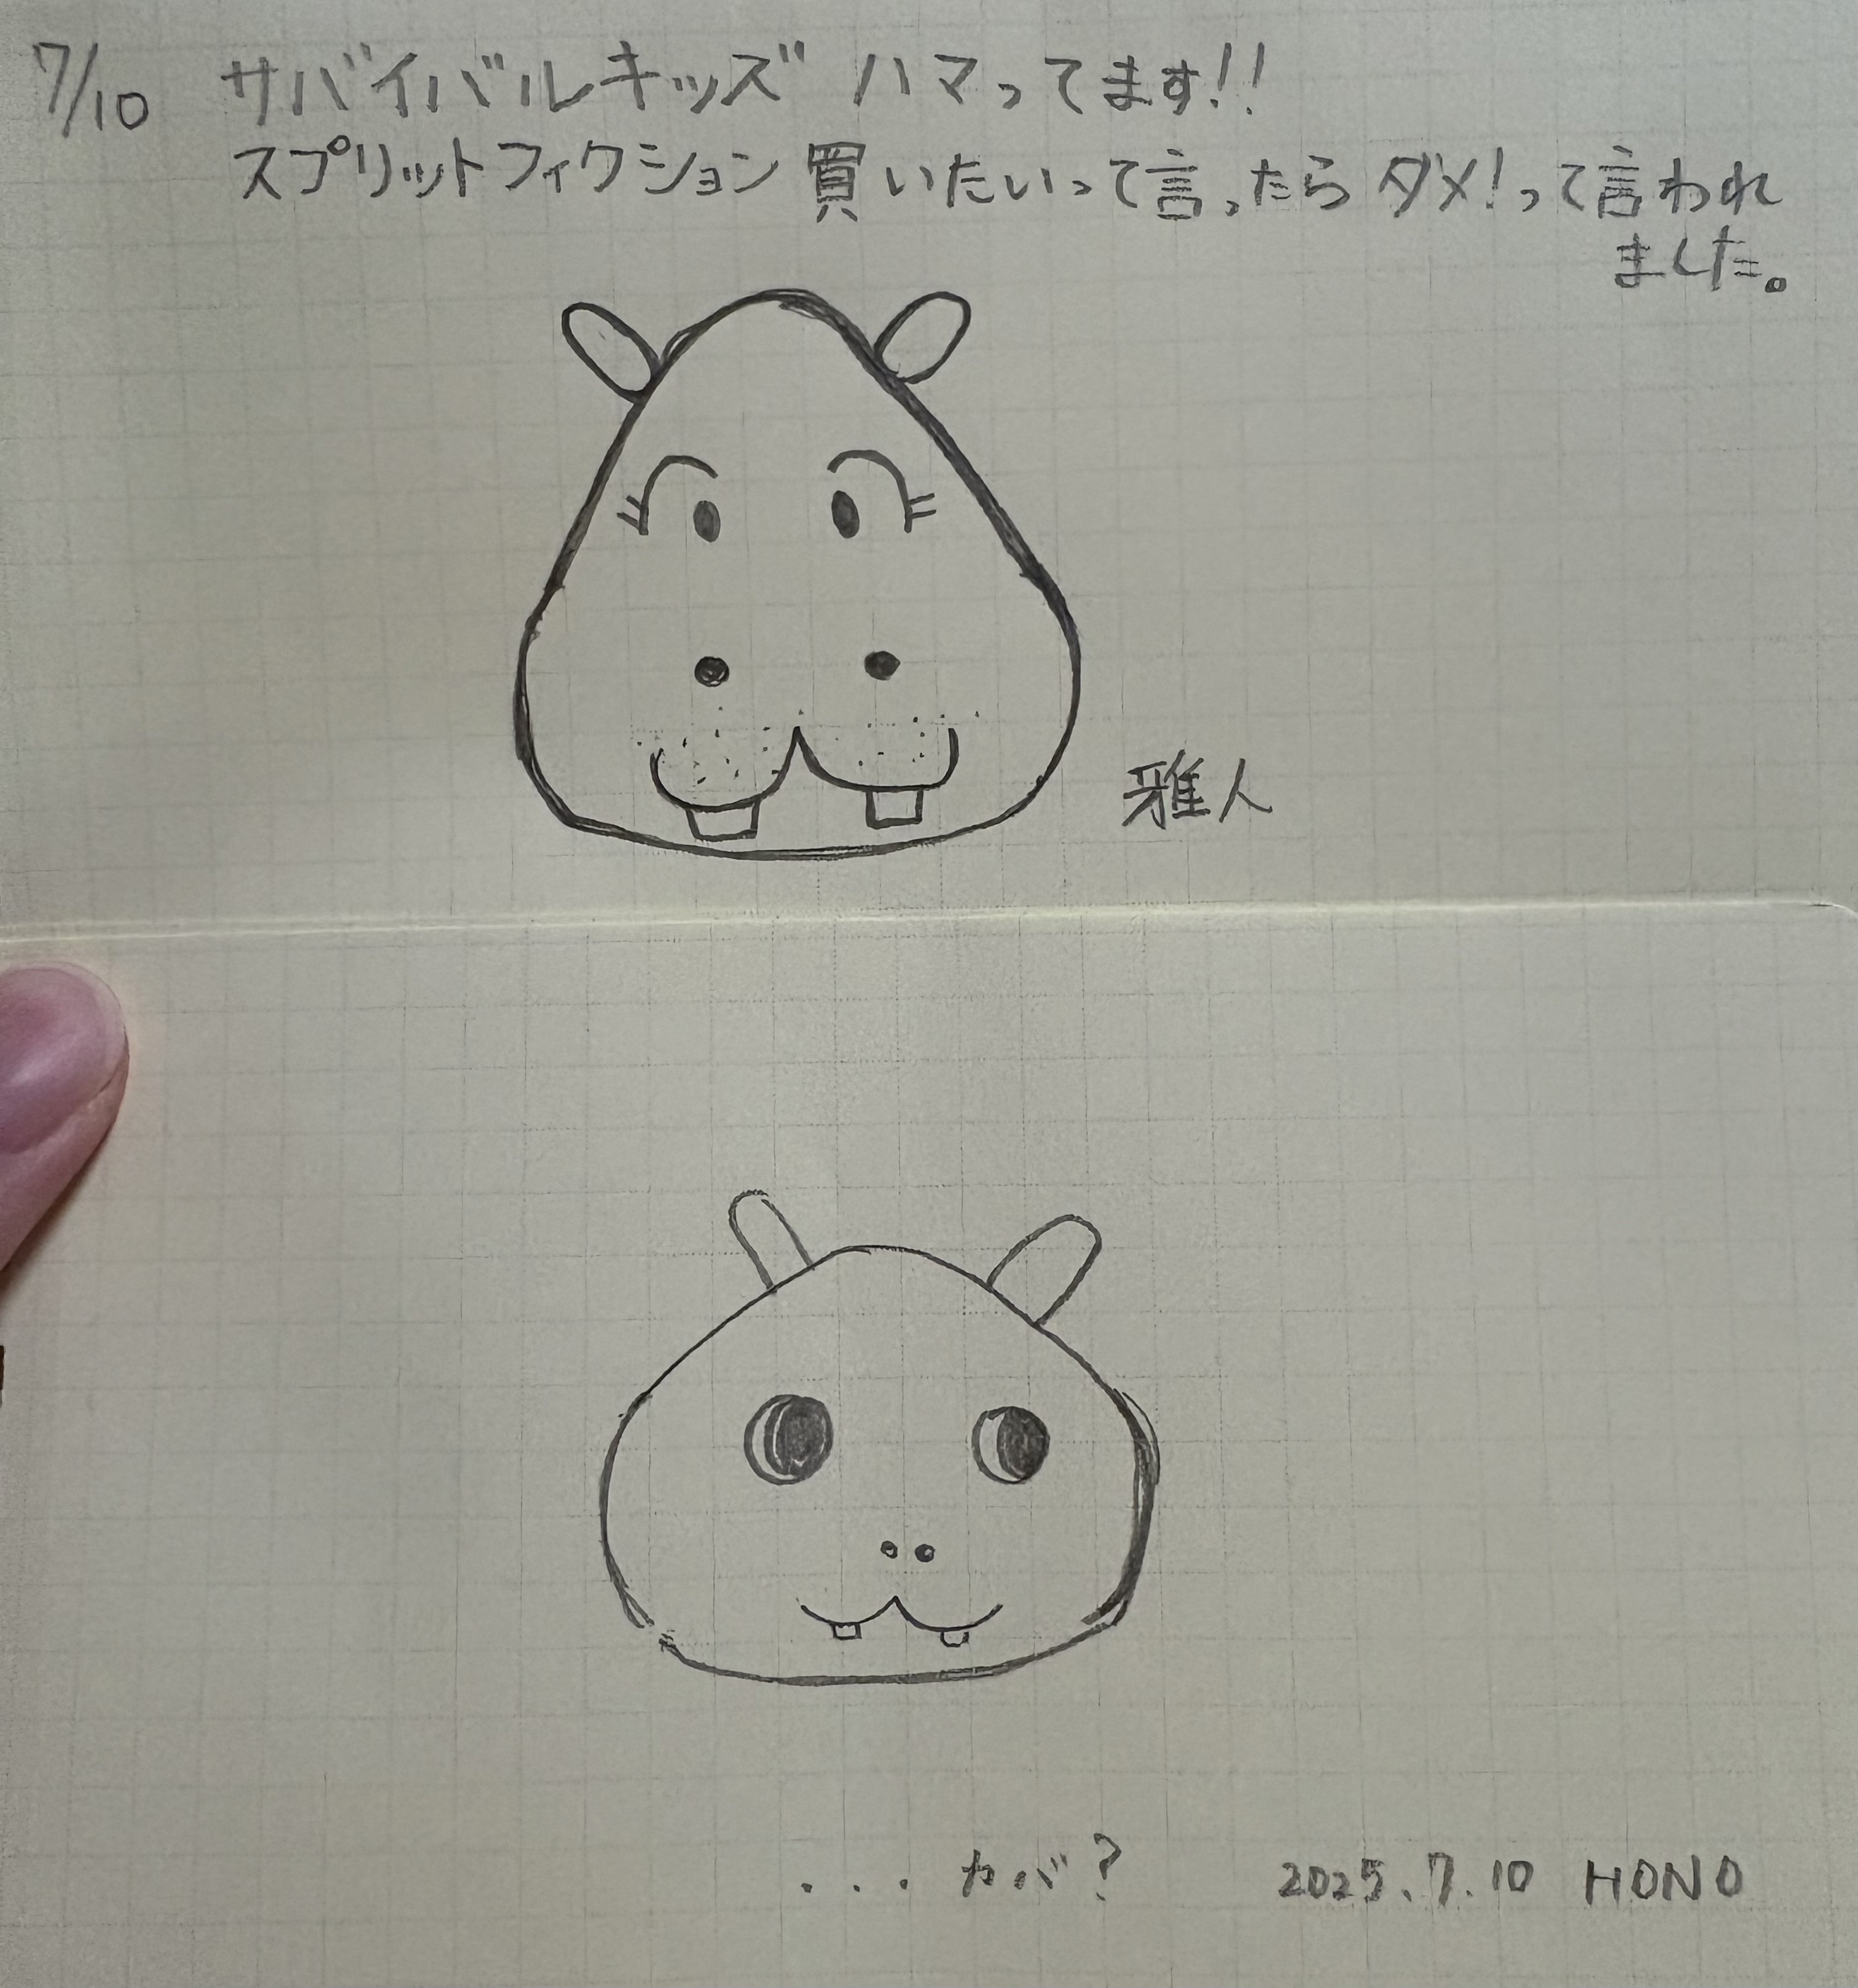 7/10 サバイバルキッズ ハマってます!!
スプリットフィクション 買いたいって言ったら ダメ!って言われ
ました。
雅人
...カバ?
2025.7.10 HONO